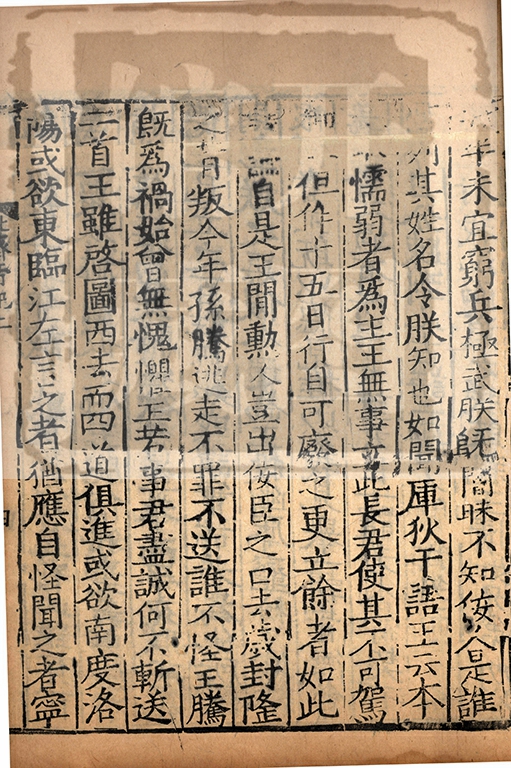 年未宜窮兵極武朕既闇昧不知佞人是誰
列其姓名令朕知也如聞厙狄干語王云本
懦弱者為主王無事立此長君使其不可駕
但作十五日行自可廢之更立餘者如此
自是王間勳人豈出佞臣之口去歲封隆
之背叛今年孫騰逃走不罪不送誰不怪王騰
既為禍始曾無愧懼王若事君盡誠何不斬送
二首王雖啓圖西去而四道俱進或欲南度洛
陽或欲東臨江左言之者猶應自怪聞之者寧